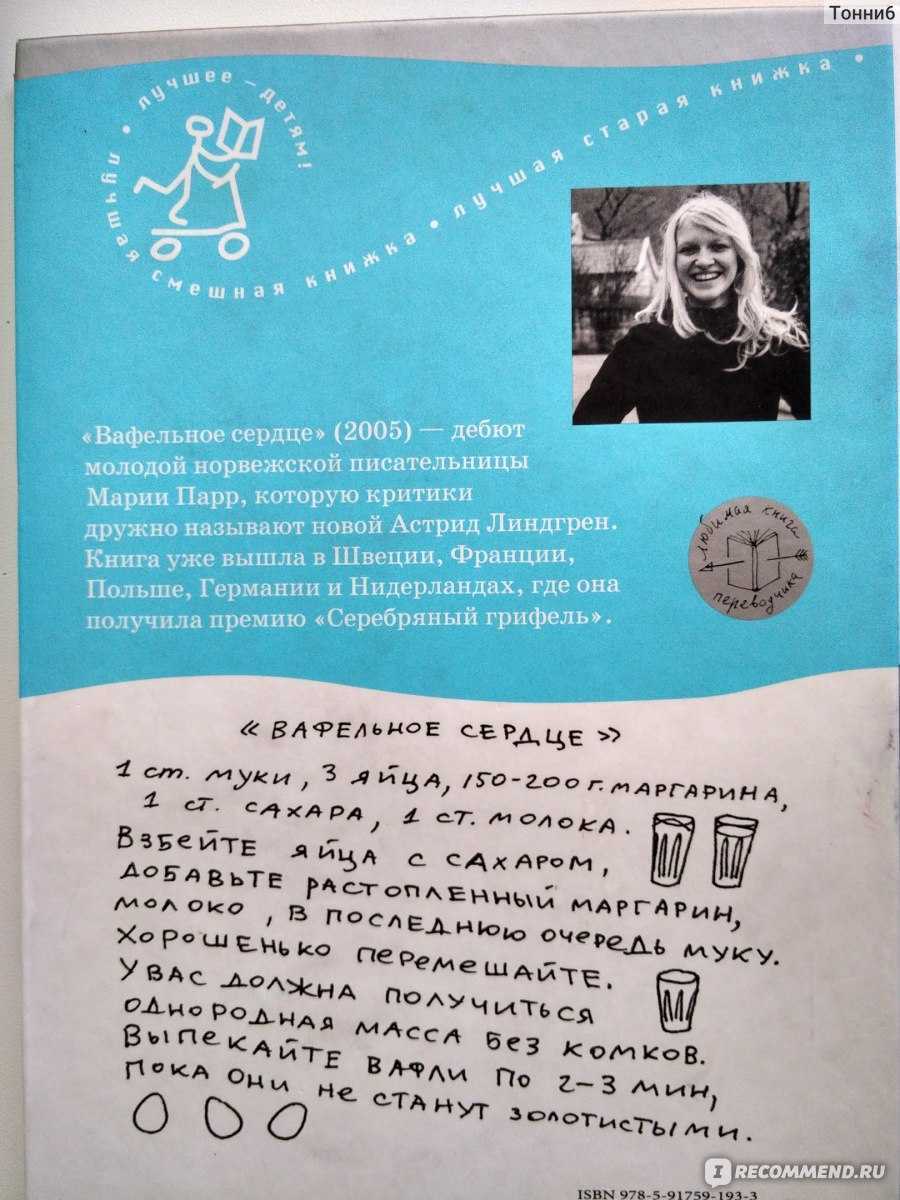 Тонни6
лучшее — детям! •
лучшая смешная книжка • лучшая старая книжка •
«Вафельное сердце» (2005) — дебют
молодой норвежской писательницы
Марии Парр, которую критики
дружно называют новой Астрид Линдгрен.
Книга уже вышла в Швеции, Франции,
Польше, Германии и Нидерландах, где она
получила премию «Серебряный грифель».
любимая книга
переводчика
«ВАФЕЛЬНОЕ СЕРДЦЕ»
1 ст. муки, 3 яйца, 150-200 г. маргарина,
1 ст. сахара, 1 ст. молока.
Взбейте яйца с сахаром,
добавьте растопленный маргарин,
молоко, в последнюю очередь муку.
Хорошенько перемешайте.
У вас должна получиться
однородная масса без комков.
Выпекайте вафли по 2-3 мин,
пока они не станут золотистыми.
ISBN 978-5-91759-193-3
IRECOMMEND.RU